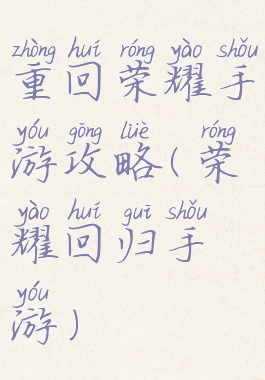 zhòng huí róng yào shǒu
重回荣耀手
yóu gōng lüè róng
游攻略(荣
yào huí guī shǒu
耀回归手
yóu
游)